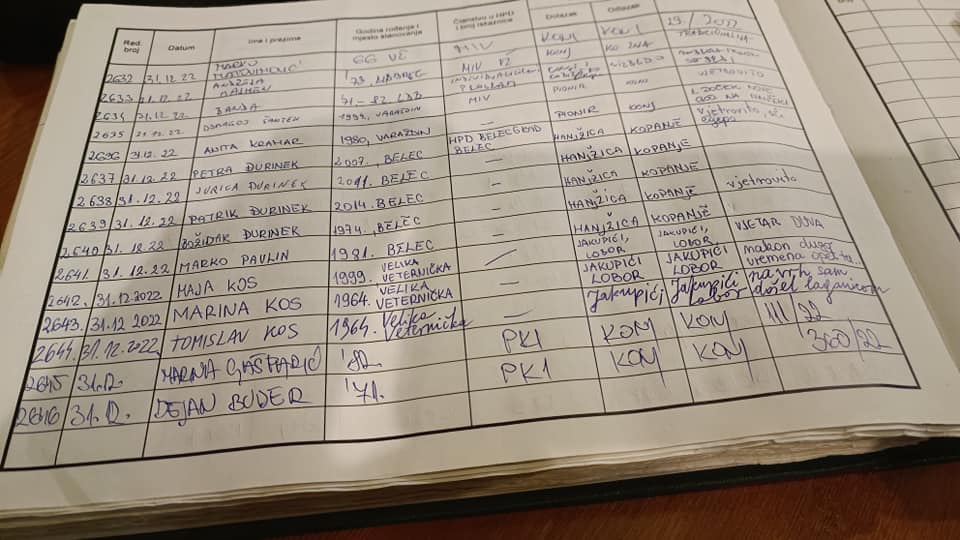 Red. broj Datum Ime i prezime Godina rođenja i mjesto stanovanja Članstvo u HPD i broj iskaznice Dolazak Odlazak
2632 31.12.22 MARKO GG VŽ MIV KONJ KONJ 29./2022
ANDREJA '79, MIV VŽ KONJ TRADICIONALNA
2633 31.12.22
2634 31.12.22 SANJA MIV PIONIR KONJ VJETROVITO
2635 31.12.22 DOMAGOJ 1994, VARAŽDIN PIONIR KONJ vjetrovito,
2636 31.12.22 ANITA KRAMAR 1980, VARAŽDIN HPD BELECGRAD BELEC HANJŽICA KOPANJE
2637 31.12.22 PETRA ĐURINEK 2007., BELEC — HANJŽICA KOPANJE
2638 31.12.22 JURICA ĐURINEK 2011. BELEC - HANJŽICA KOPANJE
2639 31.12.22 PATRIK ĐURINEK 2014. BELEC - HANJŽICA KOPANJE vjetrovito
2640 31.12.22 BOŽIDAR ĐURINEK 1974., BELEC — HANJŽICA KOPANJE
2641. 31.12.22 MARKO PAVLIN 1981. BELEC JAKUPIĆI, LOBOR JAKUPIĆI, LOBOR VJETAR DUVA
2642. 31.12.2022 MAJA KOS 1999. VELIKA VETERNIČKA — JAKUPIĆI LOBOR JAKUPIĆI LOBOR nakon dužeg vremena opet tu..
2643. 31.12 2022 MARINA KOS 1964. VELIKA VETERNIČKA — Jakupići, Jakupići Lobor na vrh sam došel laganicom
2644. 31.12.2022. TOMISLAV KOS 1964. Velika Veternička —
2645 31.12. MARINA GAŠPARIĆ '82. PK1 KONJ KONJ III/22
2646 31.12. DEJAN BUDER '71. PK1 KONJ KONJ 360/22